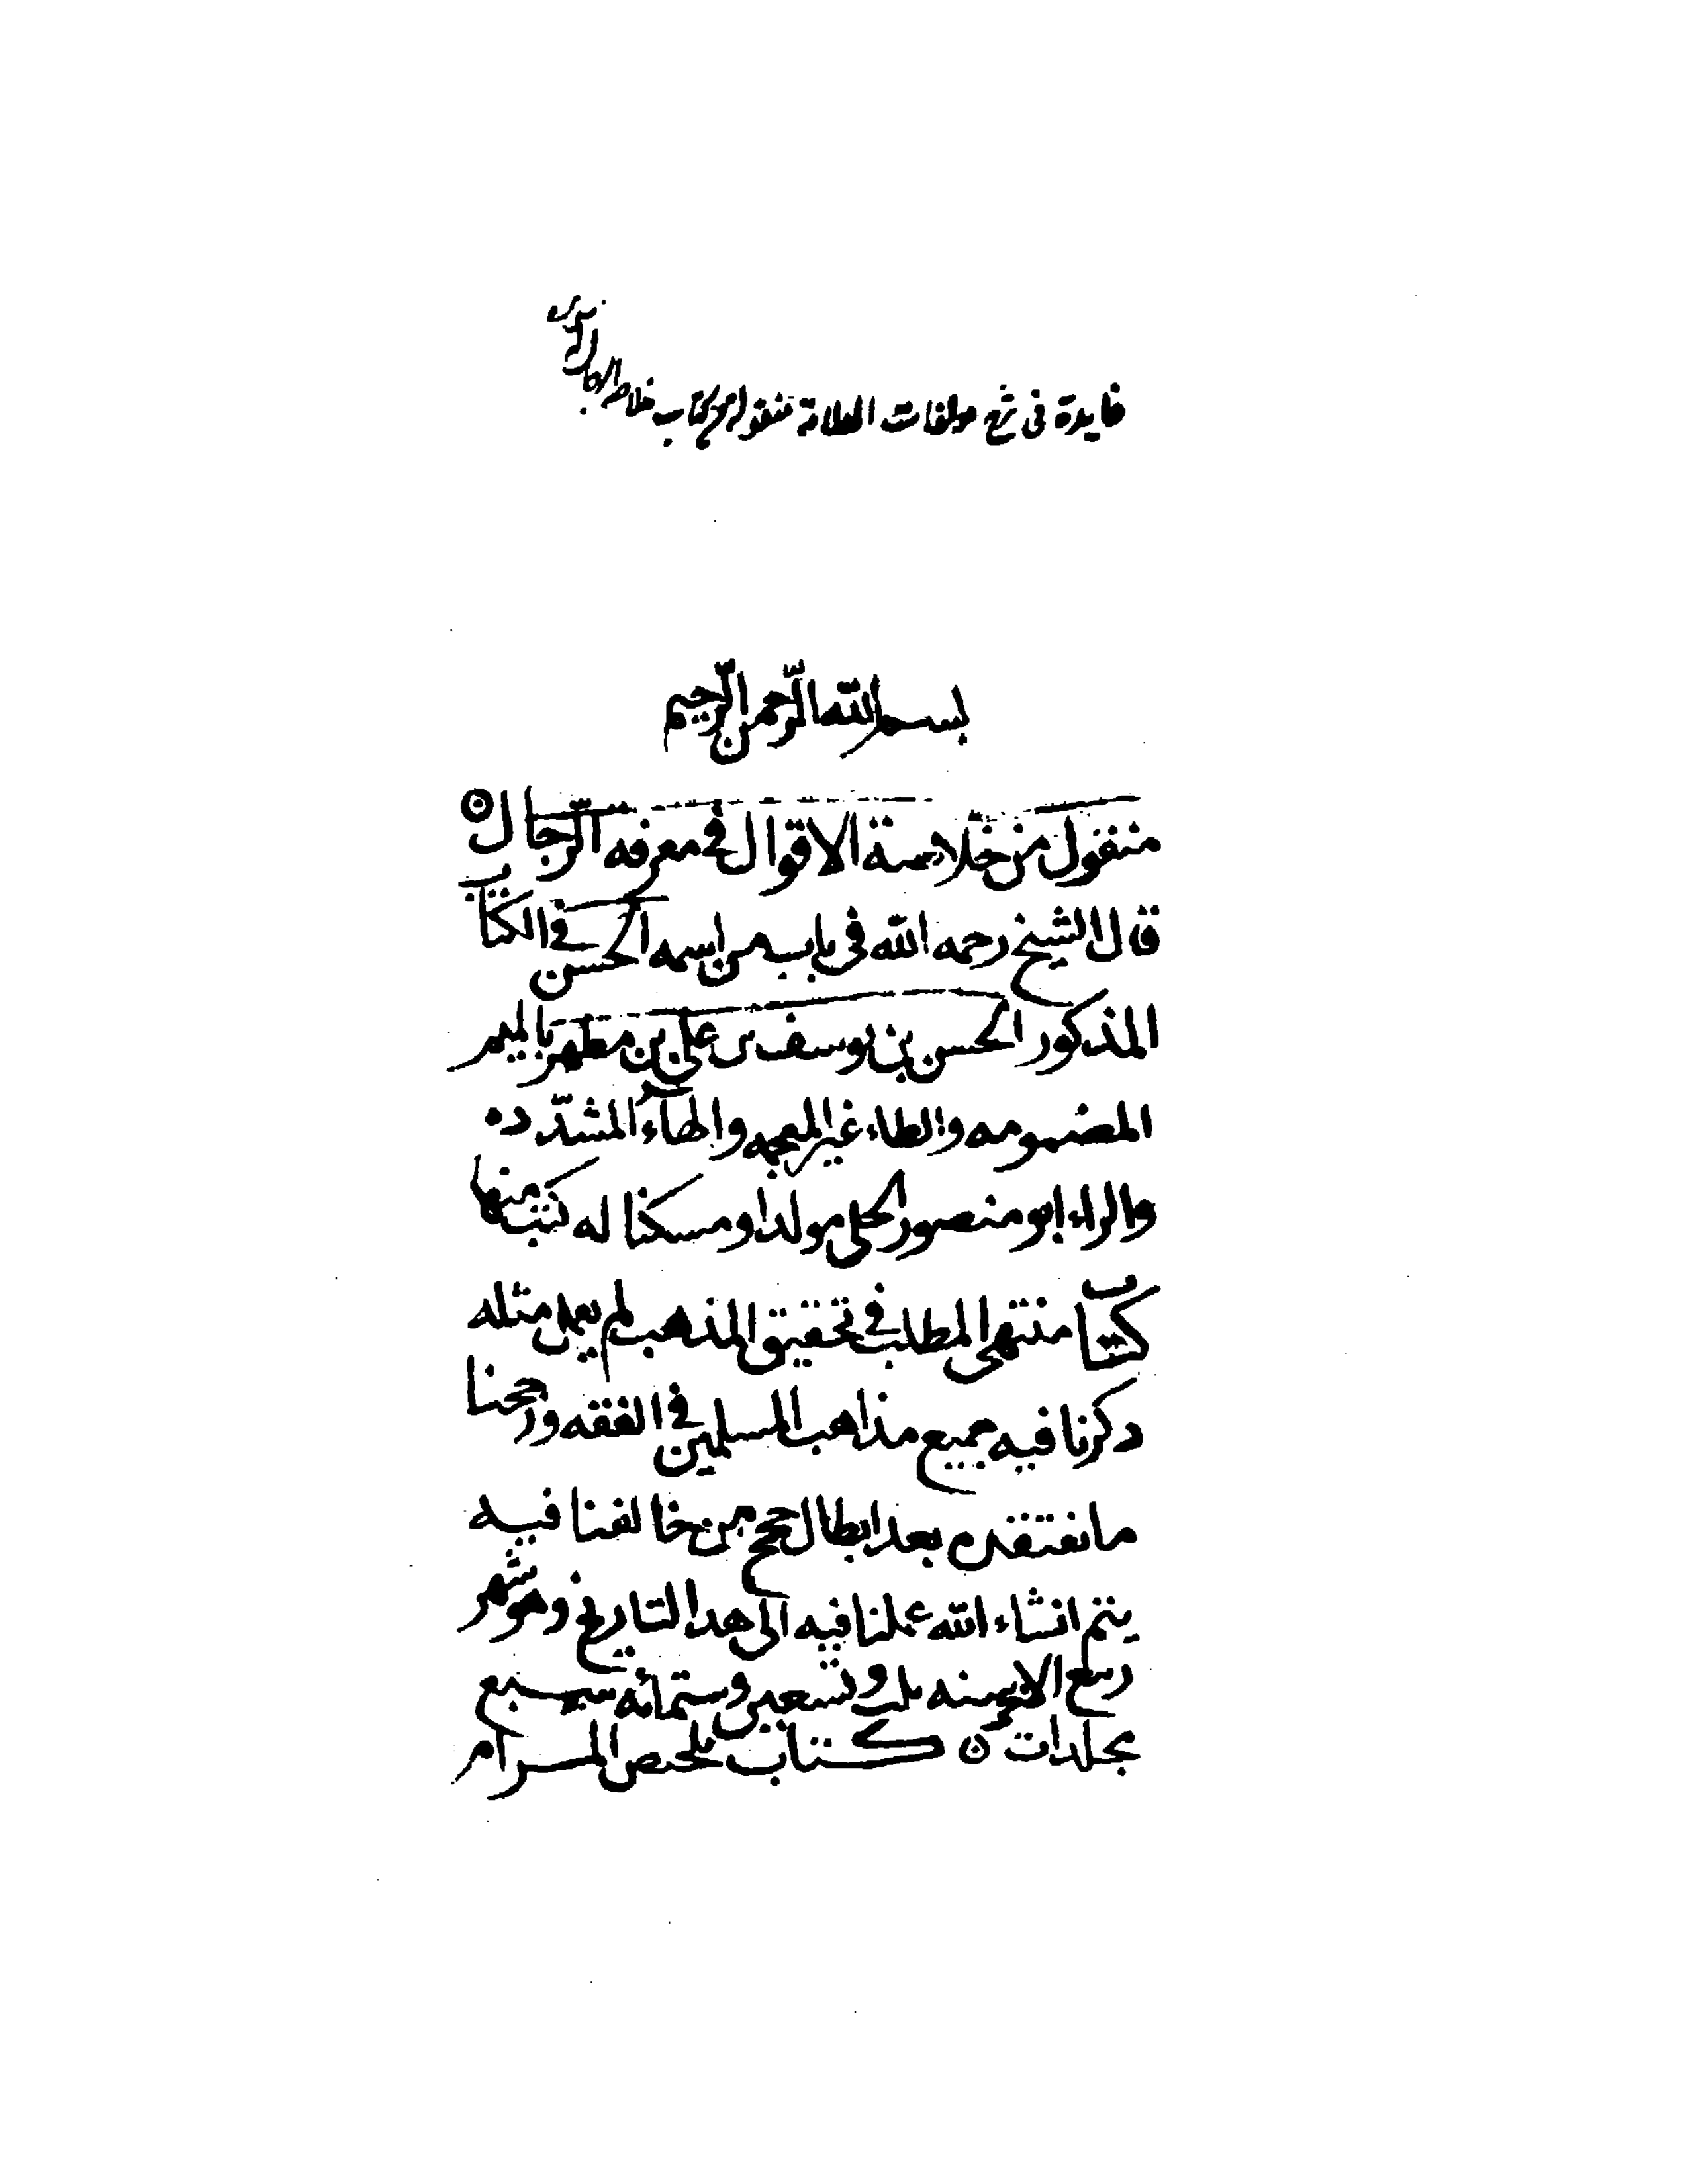 فايدة في شرح مولفات العلامة منقول من كتاب خلاصة
بسم الله الرّحمن الرّحيم
منقول من خلاصة الاقوال في معرفه الرّجال
قال الشيخ رحمه الله في باب من اسمه الحسن في الكتاب
المذكور الحسن بن يوسف بن علي بن مطهر بالميم
المضمومه والطاء غير المعجمه والهآء المشدّده
والراء ابو منصور الحلي مولدا ومسكنا له كتب منها
كتاب منتهى المطلب في تحقيق المذهب لم يعمل مثله
ذكرنا فيه جميع مذاهب المسلمين في الفقه ورجحنا
ما نعتقده بعد ابطال حجج من خالفنا فيه
يتم انشاء الله عملنا فيه الى هدا التاريخ وهو شهر
ربيع الاخر سنه ثلث وتسعين وستمائه سبع
مجلدات ۞ كتاب تلخيص المرام